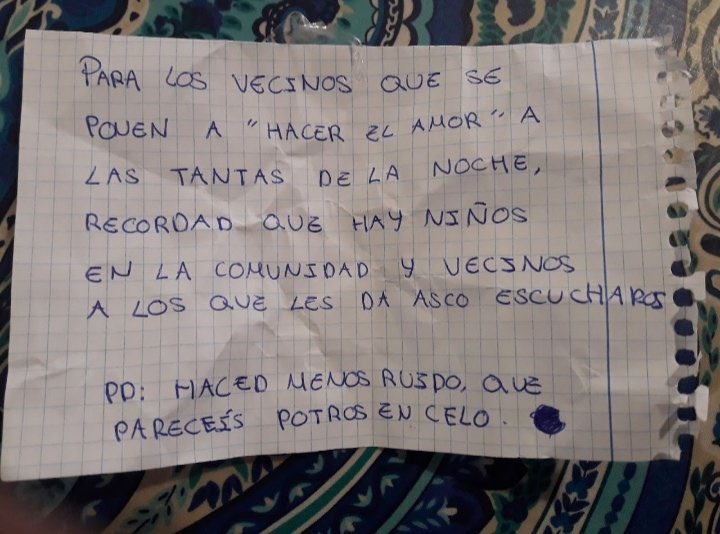 PARA LOS VECINOS QUE SE
PONEN A "HACER EL AMOR" A
LAS TANTAS DE LA NOCHE,
RECORDAD QUE HAY NIÑOS
EN LA COMUNIDAD Y VECINOS
A LOS QUE LES DA ASCO ESCUCHAROS
PD: HACED MENOS RUIDO, QUE
PARECEÍS POTROS EN CELO.